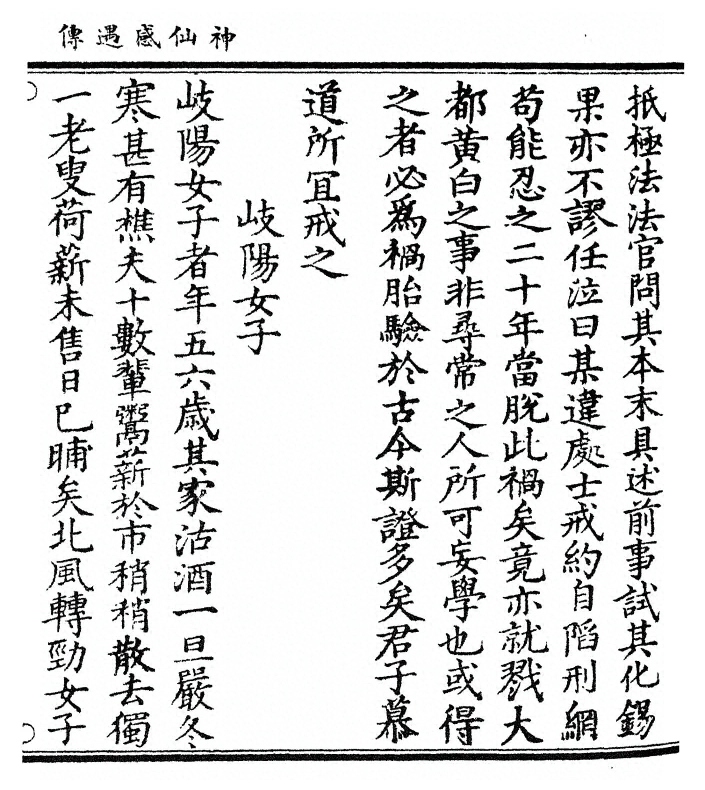 神仙感遇傳
抵極法法官問其本末具述前事試其化錫
果亦不謬任泣曰某違處士戒約自陷刑網
苟能忍之二十年當脫此禍矣竟亦就戮大
都黃白之事非尋常之人所可妄學也或得
之者必爲禍胎驗於古今斯證多矣君子慕
道所冝戒之
岐陽女子
岐陽女子者年五六歲其家沽酒一旦嚴冬
寒甚有樵夫十數輩鬻薪於市稍稍散去獨
一老叟荷薪未售日已晡矣北風轉勁女子